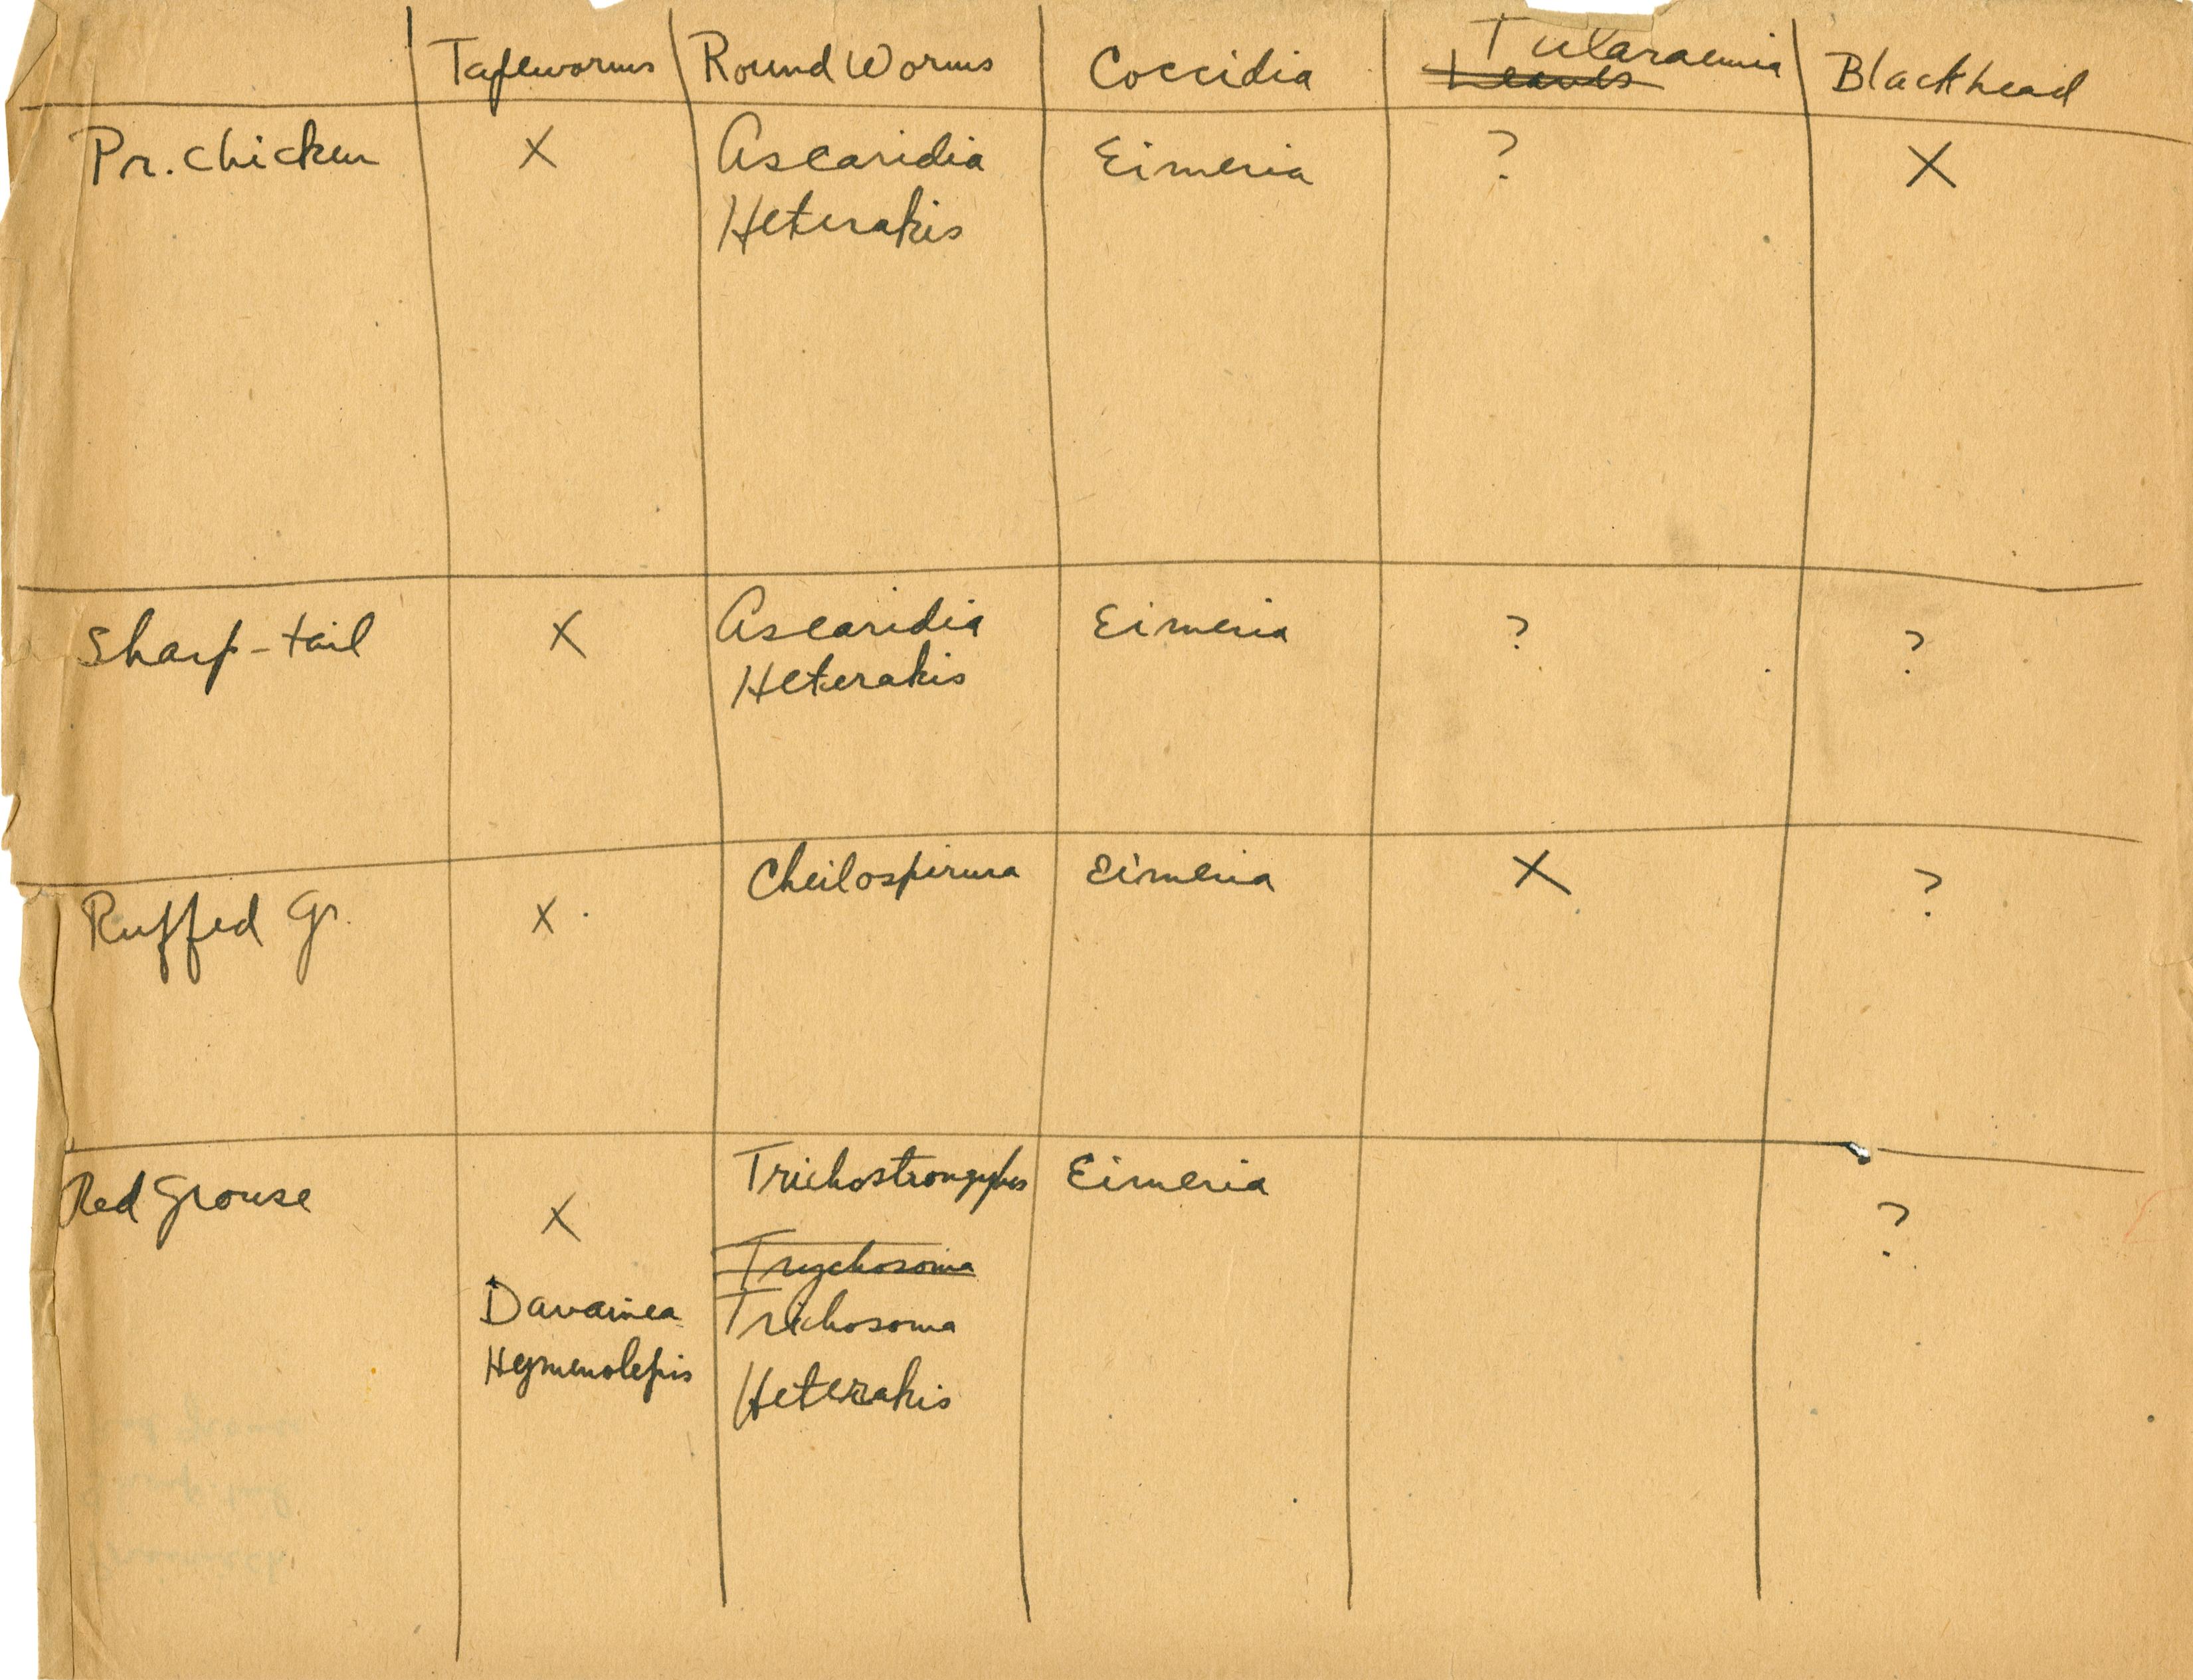 Tapeworms Round Worms Coccidia Tularaemia Blackhead
Pr. chicken X Ascaridia Eimeria ? X
Heterakis
Sharp-tail X Ascaridia Eimeria ? ?
Heterakis
Ruffed Gr. X Cheilospirura Eimeria X ?
Red Grouse X Trichostrongylus Eimeria ?
Trychosoma
Davainea Trichosoma
Hymenolepis Heterakis